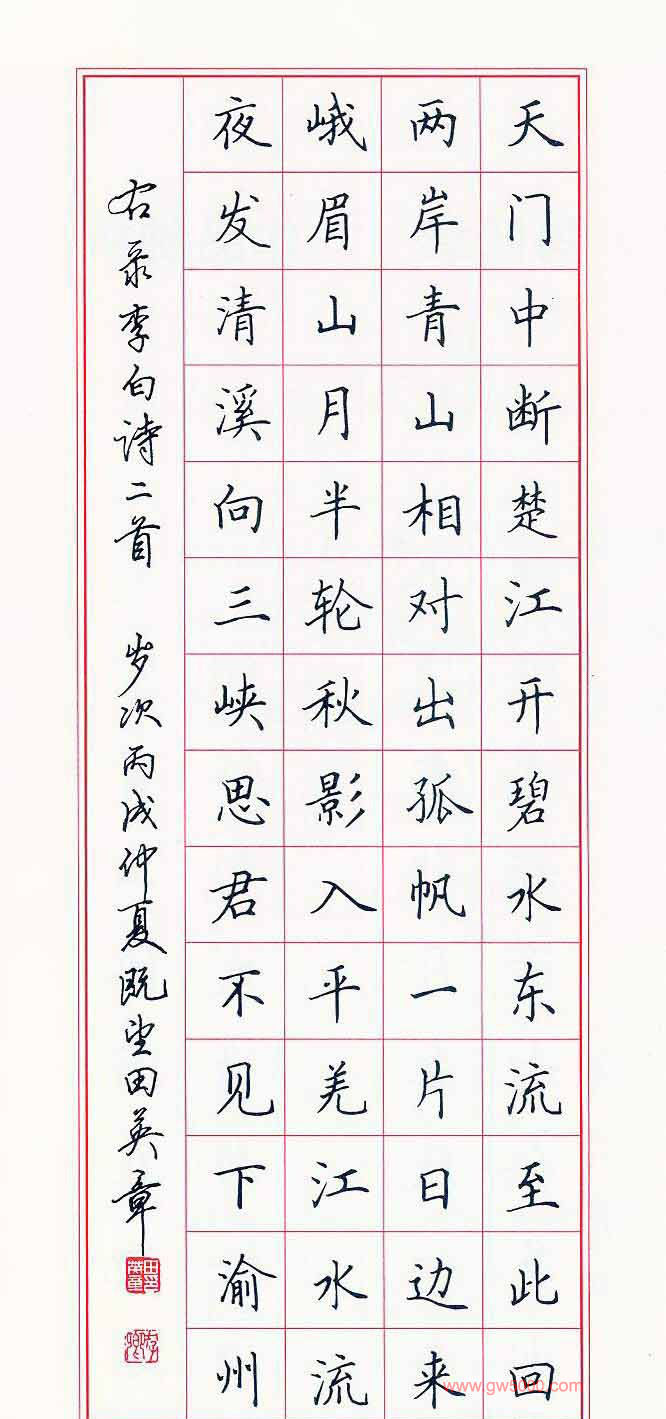 天门中断楚江开碧水东流至此回
两岸青山相对出孤帆一片日边来
峨眉山月半轮秋影入平羌江水流
夜发清溪向三峡思君不见下渝州
右录李白诗二首 岁次丙戌仲夏既望田英章
www.gw5000.com